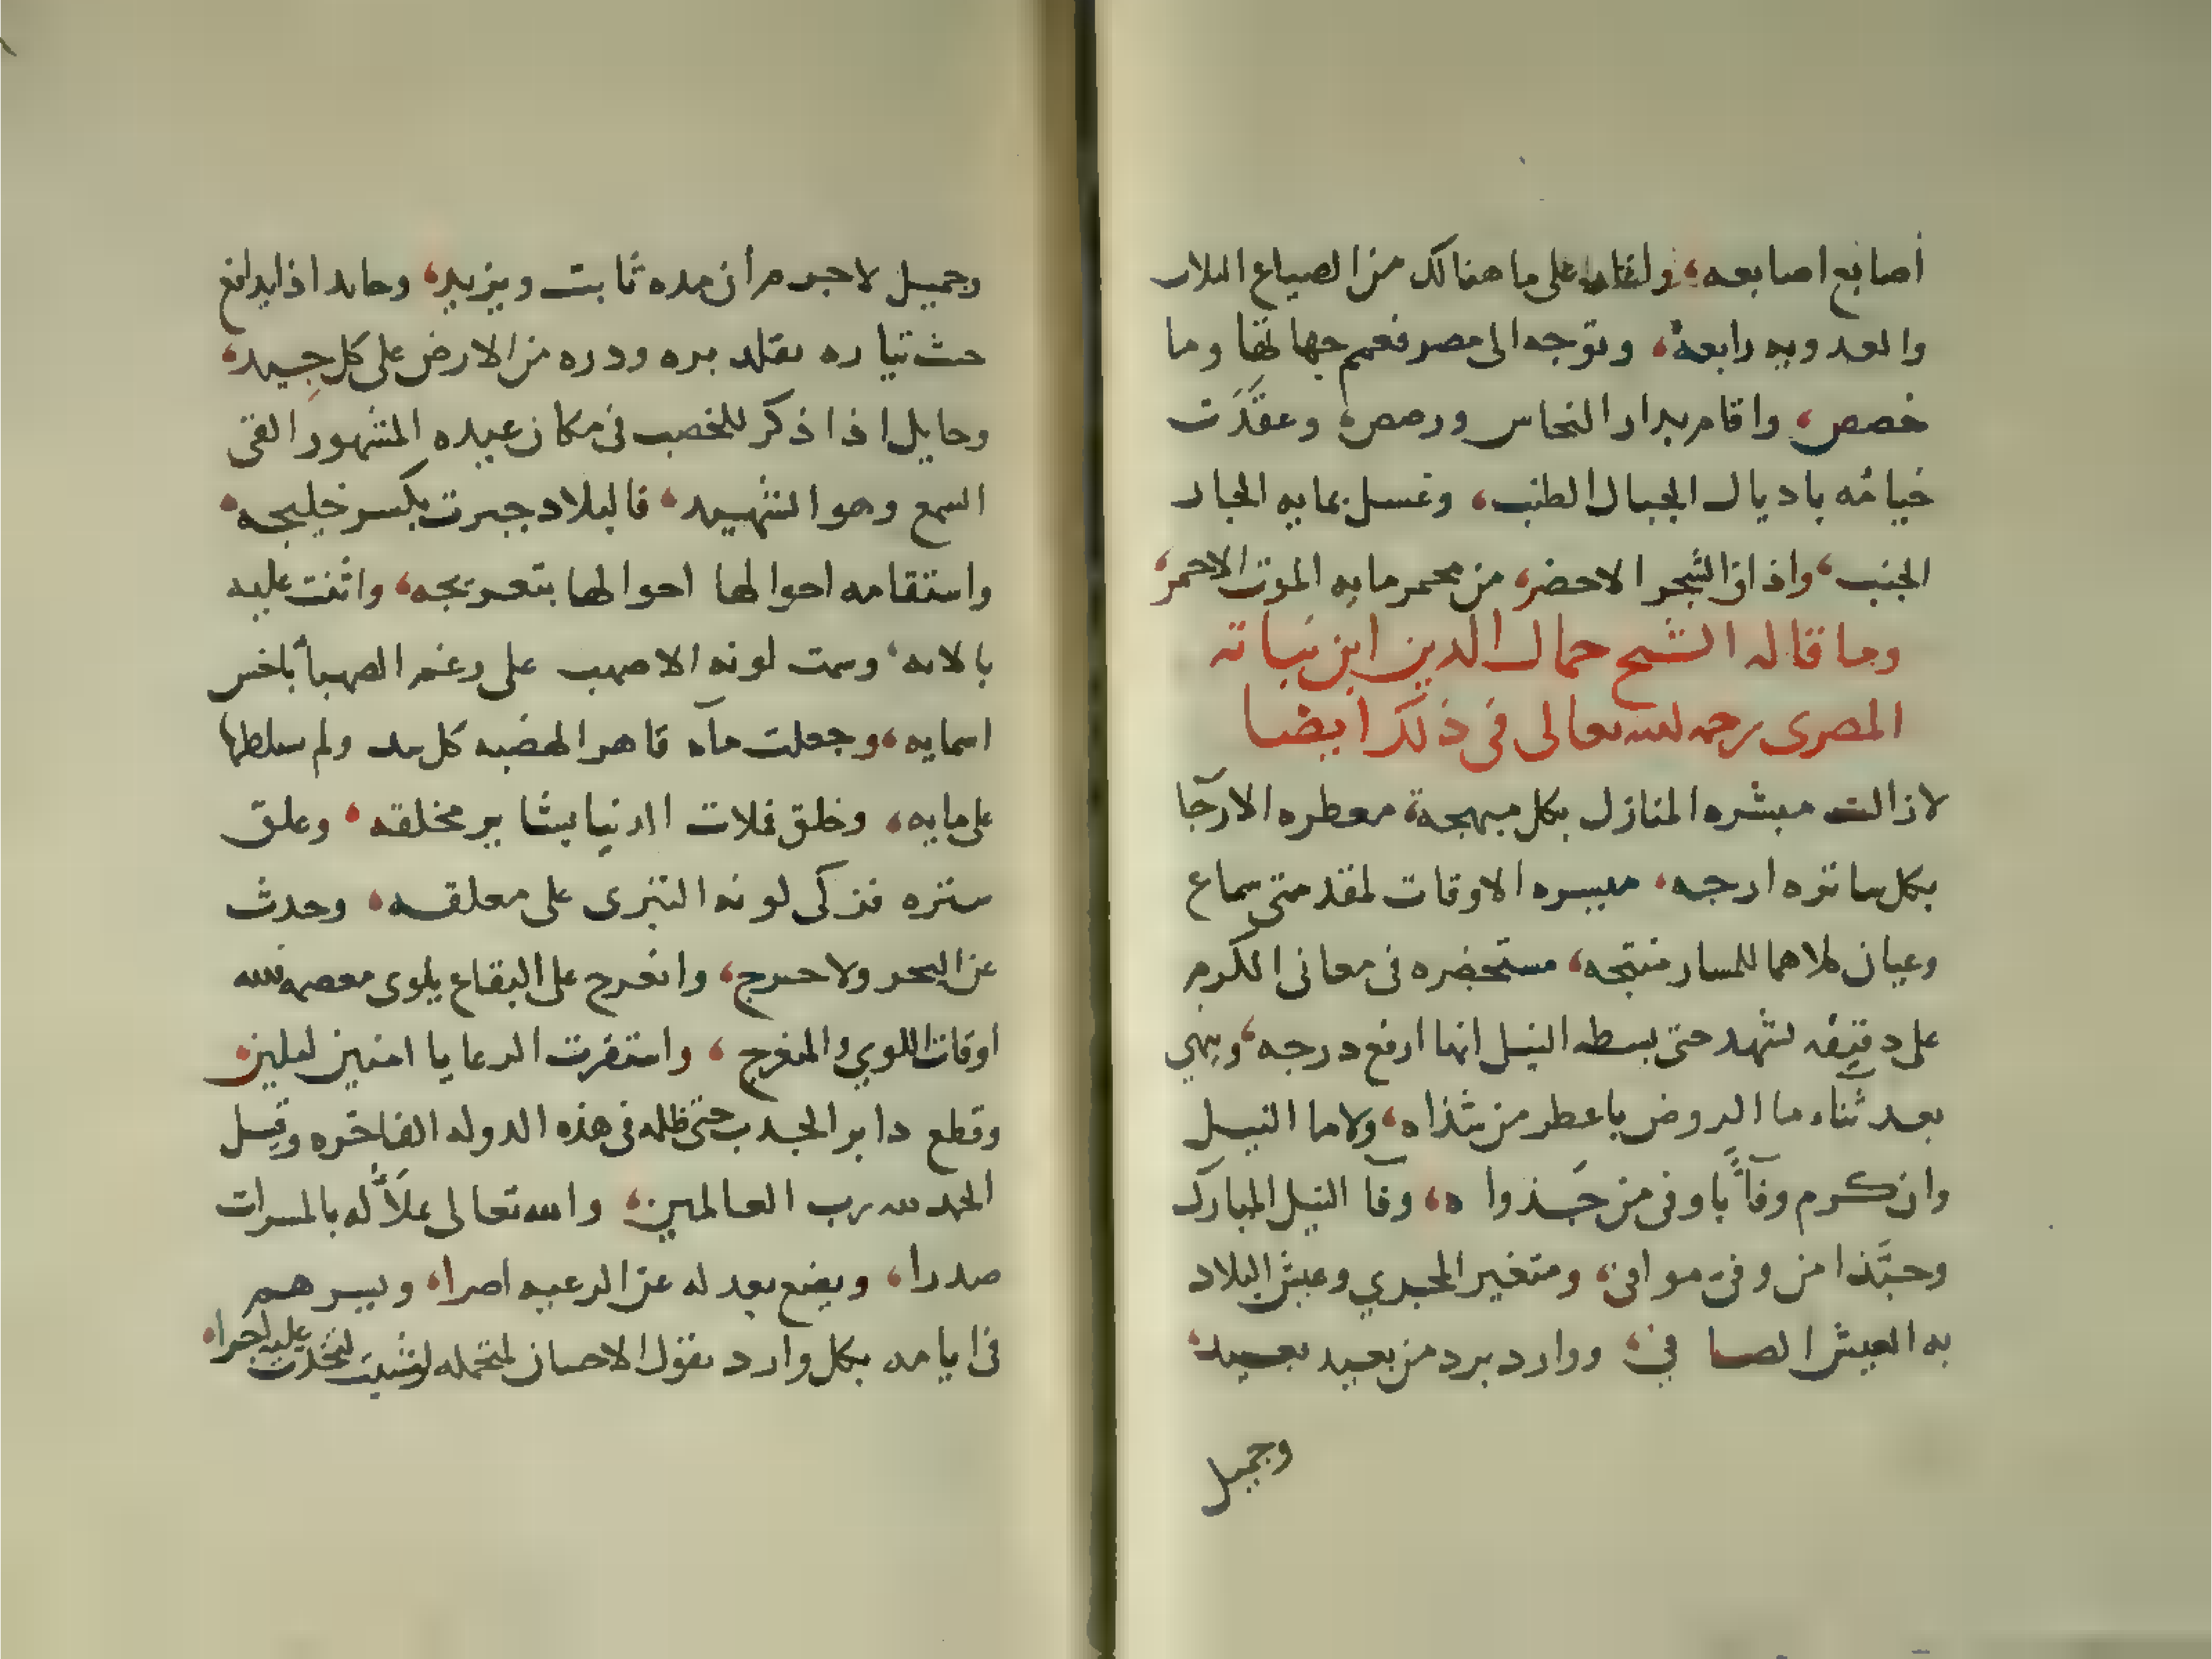 أصابع اصابعه، على ما هنالك من الصياع البلاد
والعدويه رابعة، وتوجه الى مصر فعمم جهاتها وما
خصص، واقام بدار النحاس ورصص، وعقدت
خيامه باديال الجبال الطنب، وغسل بمايه الجبال
الجنب، واذاق الشجر الاحضر، من محمر مايه الموت الاحمر،
ومما قاله الشيخ جمال الدين ابن نباته
المصرى رحمه الله تعالى فى ذلك ايضا
لازالت مبشره المنازل بكل مبهجة، معطره الارجآ
بكل سانره ارجه، ميسره الاوقات لمقدمتى سماع
وعيان كلاهما للمسار منتجه، مستحضره فى معانى الكرم
على دقيقه تشهد حتى بسطه النيل انها ارفع درجه، وينهي
بعد ثنآء ما الروض باعطر من شذاه، ولا ما النيل
وان كرم وفآ باوفى من جَذواه، وفآ النيل المبارك
وحبَّذا من وفىّ موافى، ومتغير المجري وعيش البلاد
به العيش الصافي، ووارد برد من بعيد بعيد،
وجميل
وجميل لاجرم أن مده ثابت ويزيد، وحايد اذا تدافع
حث تياره تقلد بره ودره من الارض على كل جِيد،
وحايل اذا ذكر للخصب فى مكان عبيده المشهور القى
السمع وهو الشهيد، فالبلاد جبرت بكسر خليجه،
واستقامه احوالها احوالها بتعريجه، واثنت عليه
بالائه، وسمت لونه الاصهب على رغم الصهبآ باخس
اسمايه، وجعلت مآه قاهر الهضبه كل سد ولم سلطها
على مايه، وخلق فلات الدنيا بشاير مخلقه، وعلق
ستره فزكى لونه التبرى على معلقه، وحدث
عن البحر ولا حرج، وانعرج على البقاع يلوى معصمه فلله
اوقات اللوي والمنعرج، واستقرت الرعايا امنين املين،
وقطع دابر الجدب حتى ظله فى هذه الدوله الفاخره وقيل
الحمد لله رب العالمين، والله تعالى يملآ له بالمسرات
صدرا، ويضع بعدله عن الرعيه اصرا، ويسرهم
فى ايامه بكل وارد نقول الاحسان لمتحمله لو شيت لتخذت عليه اجرا،